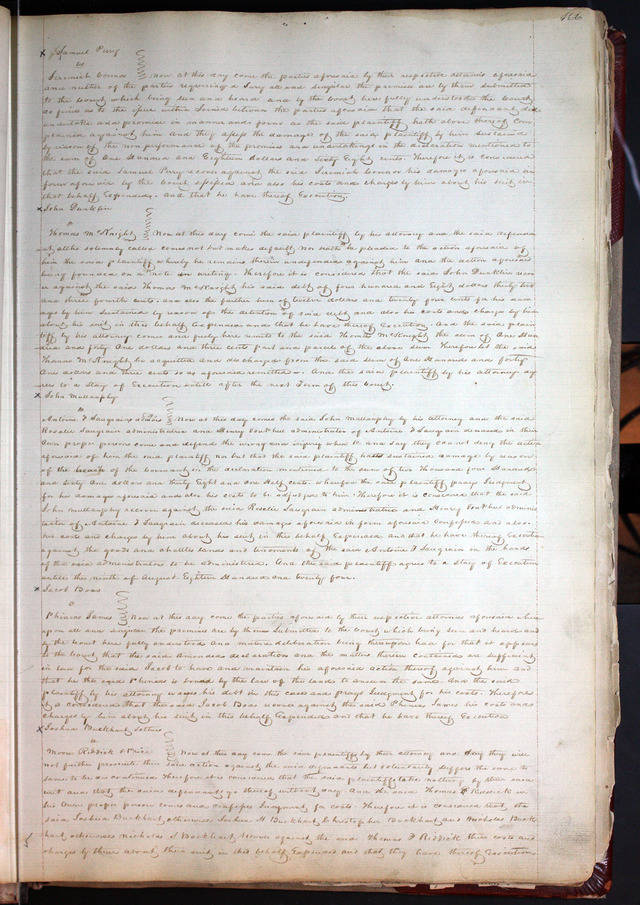 466
x Samuel Perry
vs
Jeremiah Connor Now at this day come the parties aforesaid by their respective attornies aforesaid
and neither of the parties requiring a Jury all and singular the premises are by them submitted
to the Court which being seen and heard and by the Court here fully understood the Court
finds as to the issue within Joined between the parties aforesaid that the said defendant did
undertake and promise in manner and form as the said plaintiff hath above thereof com
plained against him and they assess the damages of the said plaintiff by him sustained
by reason of the non performance of the promises and undertakings in the declaration mentioned to
the sum of One Hundred and Eighteen dollars and Sixty Eight cents. Therefore it is considered
that the said Samuel Perry recover against the said Jeremiah Connor his damages aforesaid in
form aforesaid by the Court assessed and also his costs and charges by him about his suit in
that behalf Expended. and that he have thereof Execution
x John Dunklin
vs
Thomas McKnight Now at this day comes the said plaintiff by his attorney and the said defend
ant, altho solemnly called comes not but makes default, nor hath he pleaded to the action aforesaid of
him the said plaintiff whereby he remains therein undefended against him and the action aforesaid
being founded on a Note in writing. Therefore it is considered that the said John Dunklin recov
er against the said Thomas McKnight his said debt of four hundred and Eight dollars thirty two
and three fourth cents. and also the further sum of twelve dollars and twenty four cents for his dam
ages by him sustained by reason of the detention of said debt and also his costs and charges by him
about his suit in this behalf Expended and that he have thereof Execution. And the said plain
tiff by his attorney comes and freely here remits to the said Thomas McKnight the sum of One Hun
dred and forty One dollars and three cents part and parcel of the above sum Therefore let the said
Thomas McKnight be acquitted and discharged from the said sum of One Hundred and forty
One dollars and three cents so as aforesaid remitted. And the said plaintiff by his attorney ag
rees to a Stay of Execution until after the next Term of this Court.
x John Mullanphy
vs
Antoine F Saugrains admrs Now at this day comes the said John Mullanphy by his attorney and the said
Rosalie Saugrain administratrix and Henry Von Phul administrator of Antoine F Saugrain deceased in their
own proper persons come and defend the wrong and injury when &c and say they cannot deny the action
aforesaid of him the said plaintiff nor but that the said plaintiff hath sustained damages by reason
of the breach of the Covenant in the declaration mentioned to the sum of two Thousand four Hundred
and Sixty One dollars and thirty Eight and one Half cents. wherefore the said plaintiff prays Judgment
for his damages aforesaid and also his costs to be adjudged to him Therefore it is considered that the said
John Mullanphy recover against the said Rosalie Saugrain administratrix and Henry Von Phul adminis
trator of Antoine F Saugrain deceased his damages aforesaid in form aforesaid Confessed and also
his costs and charges by him about his suit in this behalf Expended and that he have thereof Execution
against the goods and chattles lands and tenements of the said Antoine F Saugrain in the hands
of the said administrators to be administered. And the said plaintiff agrees to a Stay of Execution
until the ninth of August Eighteen Hundred and twenty four.
x Jacob Boas
vs
Phineas James Now at this day come the parties aforesaid by their respective attornies aforesaid where
upon all and singular the premises are by them Submitted to the Court which being seen and heard and
by the Court here fully understood and mature deliberation being thereupon had for that it appears
to the Court that the said Amended declaration and the matters therein contained are sufficient
in law for the said Jacob to have and maintain his aforesaid action thereof against him and
that he the said Phineas is bound by the law of the land to answer the same. And the said
plaintiff by his attorney waives his debt in this case and prays Judgment for his costs. Therefore
it is considered that the said Jacob Boas recover against the said Phineas James his costs and
charges by him about his suit in this behalf Expended and that he have thereof Execution
x Joshua Burkhart &others
vs
Moore Riddick & Price Now at this day come the said plaintiffs by their attorney and say they will
not further prosecute their said action against the said defendants but voluntarily suffers the same to
same to be discontinued Therefore it is considered that the said plaintiffs take nothing by their said
writ and that the said defendants go thereof without day And the said Thomas F Riddick in
his Own proper person comes and confesses Judgment for costs. Therefore it is considered that the
said Joshua Burkhart, otherwise Joshua H Burkhart, Christopher Burkhart and Nicholas Burk
hart otherwise Nicholas S Burkhart, recover against the said Thomas F Riddick their costs and
charges by them about their suit in this behalf Expended and that they have thereof Execution